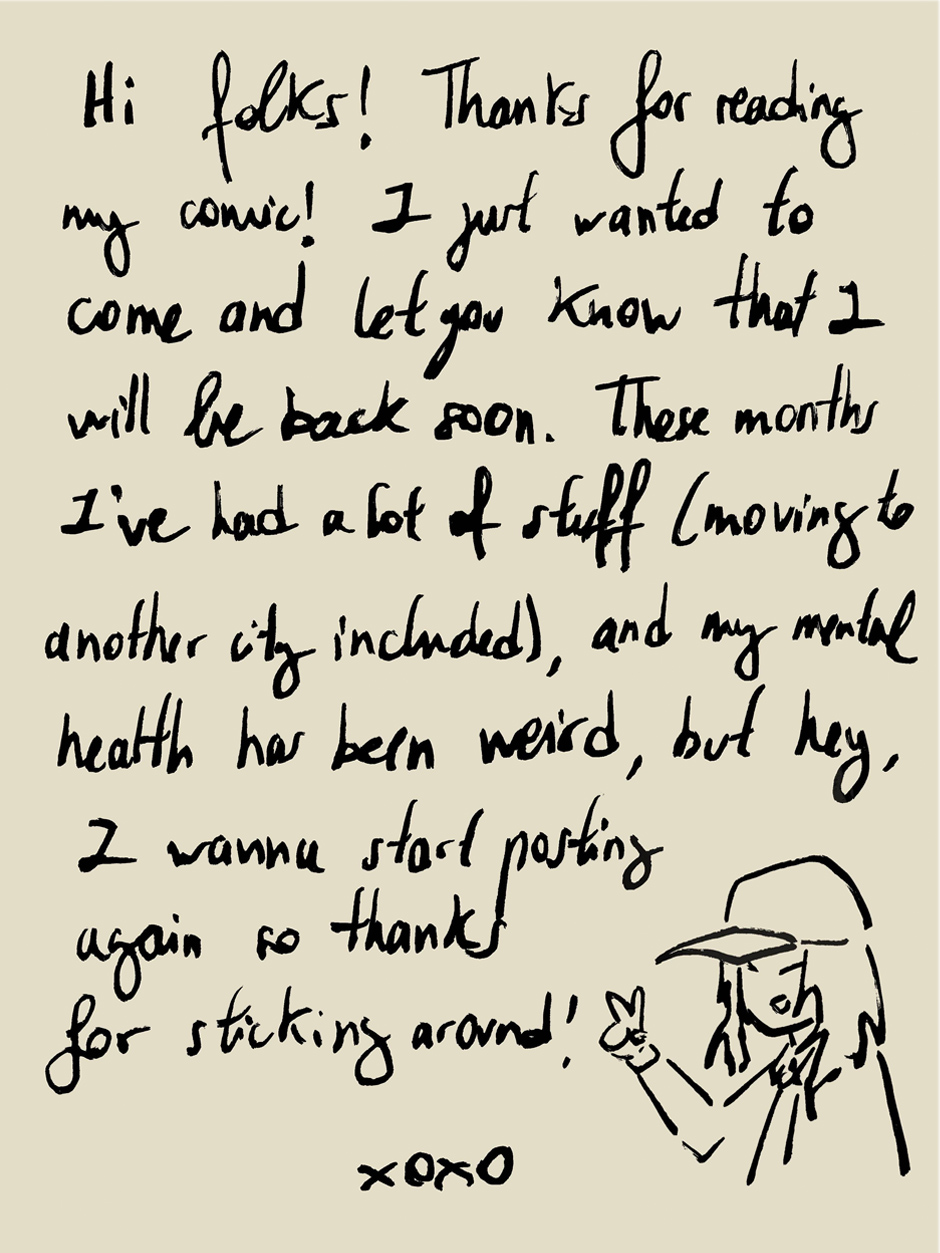 Hi folks! Thanks for reading
my comic! I just wanted to
come and let you know that I
will be back soon. These months
I've had a lot of stuff (moving to
another city included), and my mental
health has been weird, but hey,
I wanna start posting
again so thanks
for sticking around!
xoxo